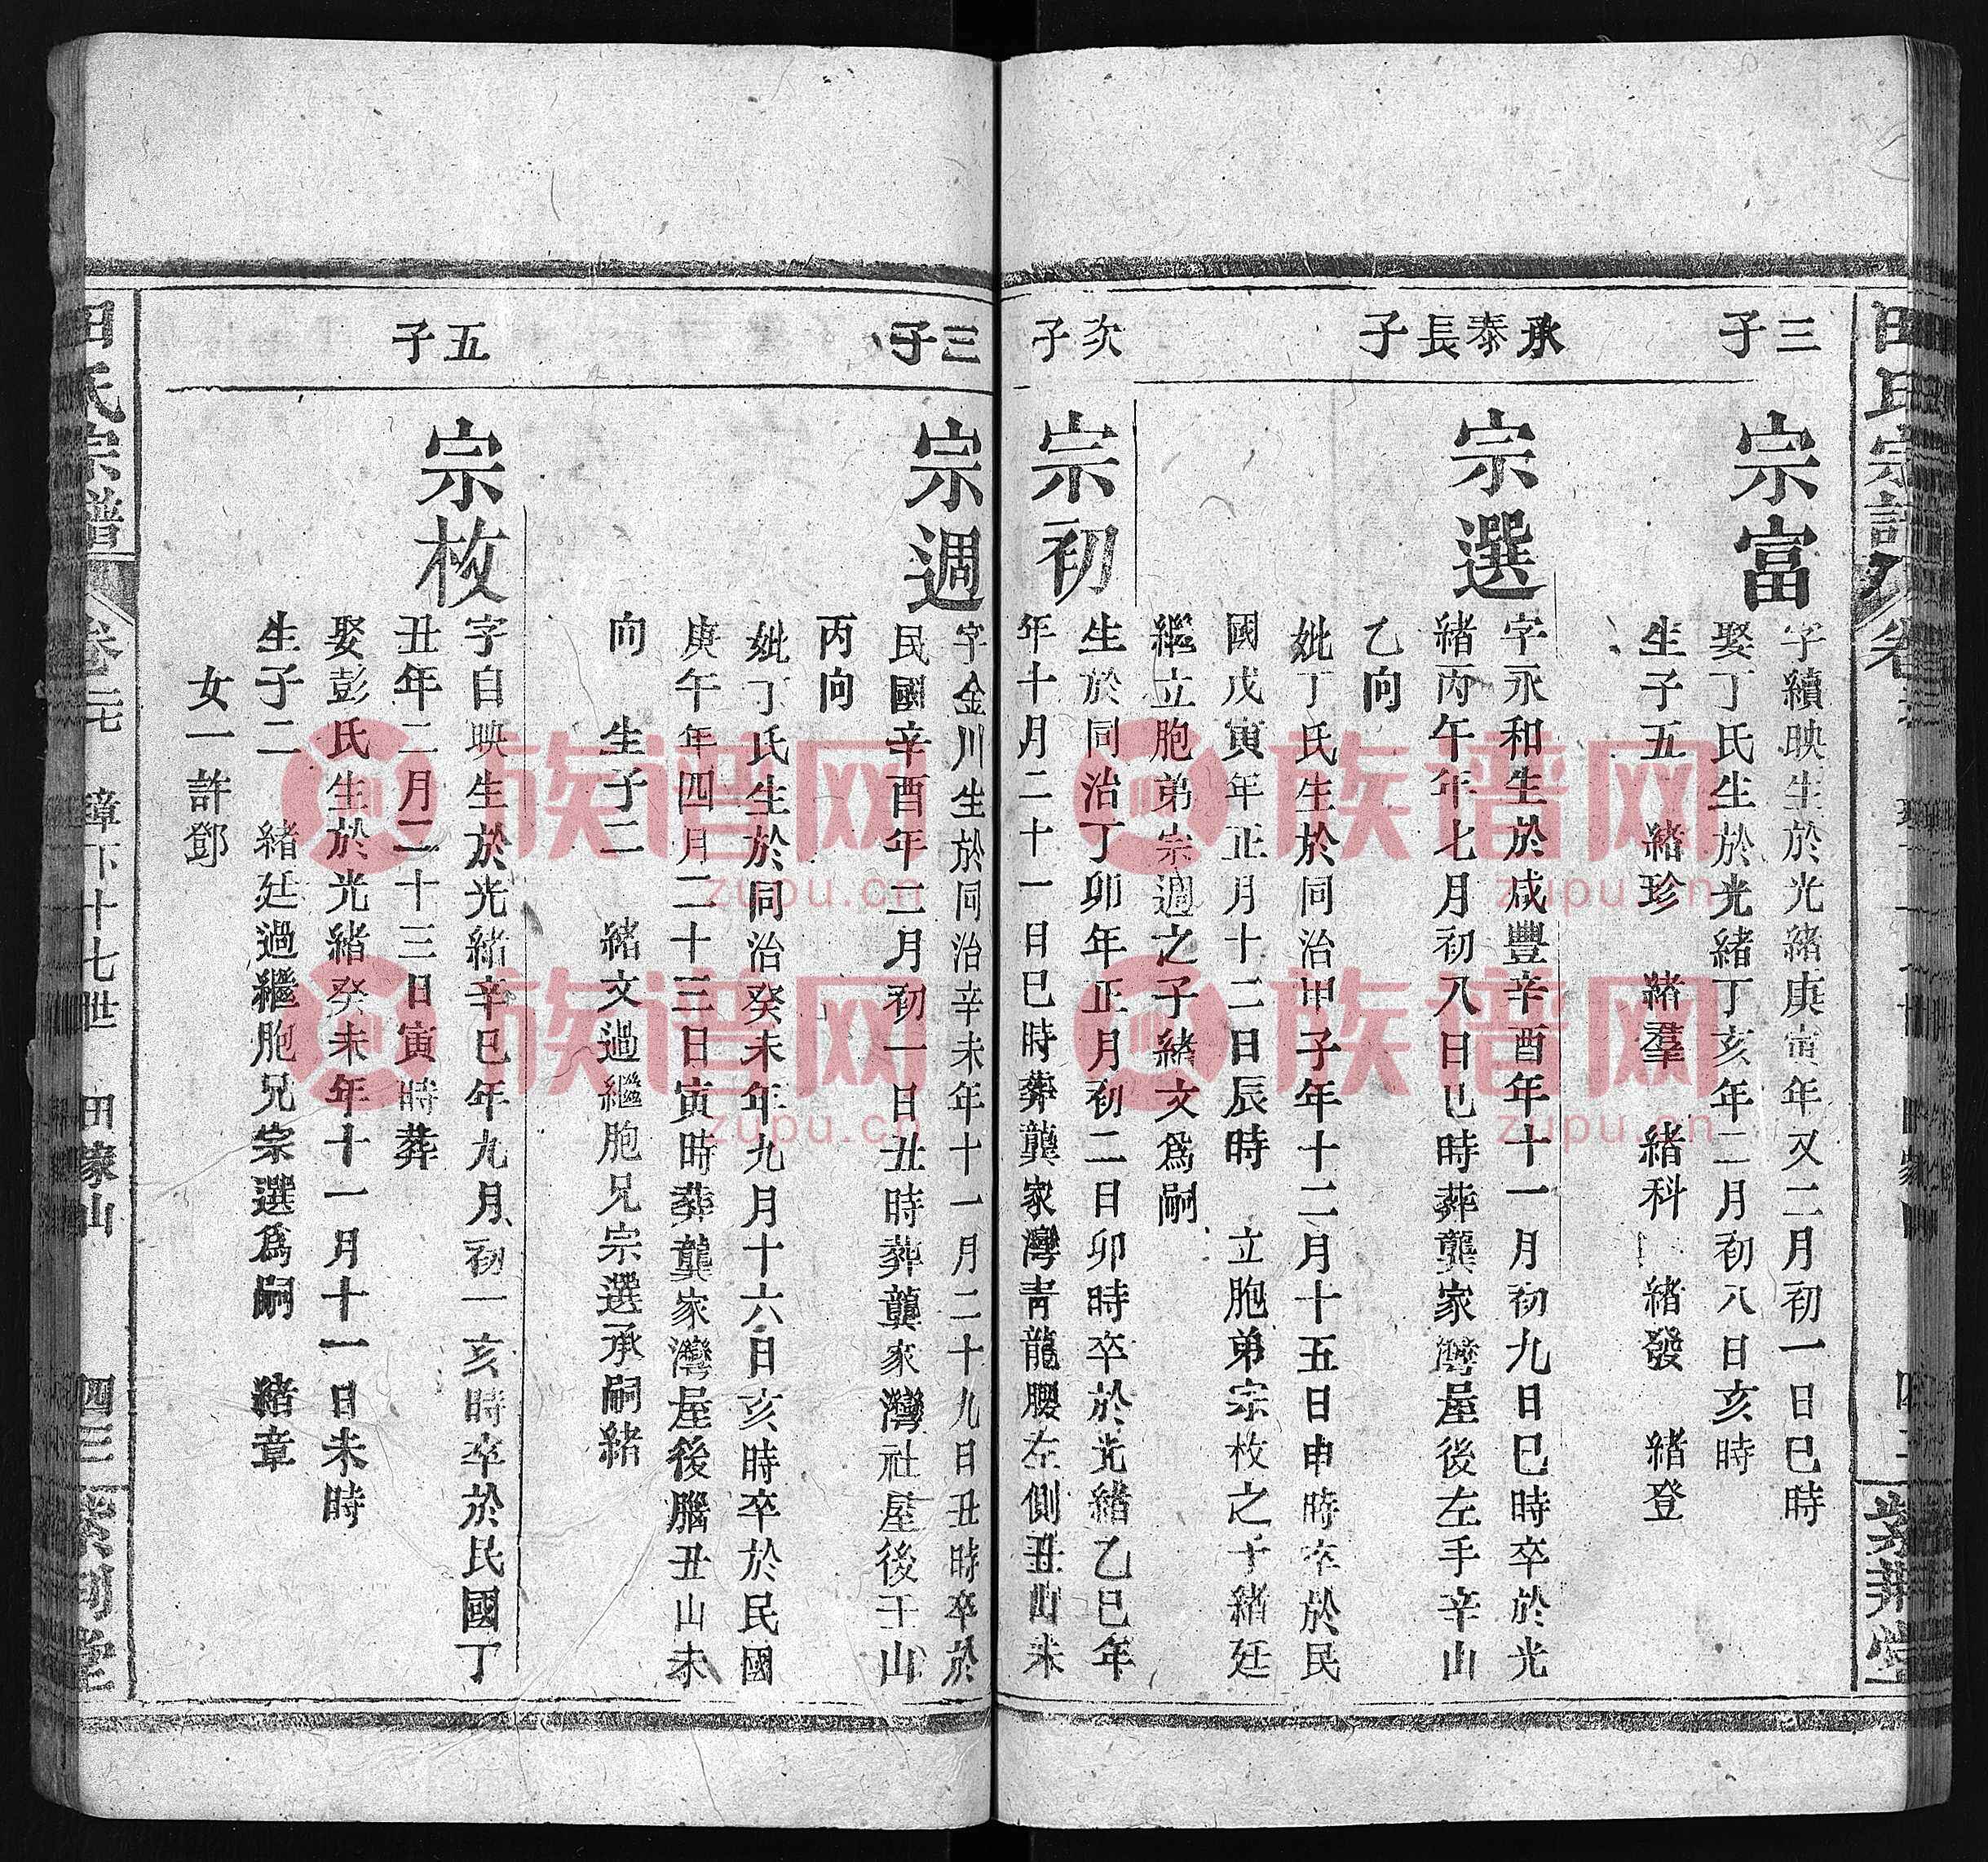 田氏宗譜
紫荊堂
三子
宗富
字續映生於光緒庚寅年又二月初一日巳時
娶丁氏生於光緒丁亥年二月初八日亥時
生子五 緒珍 緒羣 緒科 緒發 緒登
承泰長子
宗選
字永和生於咸豐辛酉年十一月初九日巳時卒於光
緒丙午年七月初八日巳時葬龔家灣屋後左手辛山
乙向
妣丁氏生於同治甲子年十二月十五日申時卒於民
國戊寅年正月十二日辰時 立胞弟宗枚之子緒廷
繼立胞弟宗週之子緒文為嗣
次子
宗初
生於同治丁卯年正月初二日卯時卒於光緒乙巳年
年十月二十一日巳時葬龔家灣青龍腰左側丑山未
三子
宗週
字金川生於同治辛未年十一月二十九日丑時卒於
民國辛酉年二月初一日丑時葬龔家灣社屋後壬山
丙向
妣丁氏生於同治癸未年九月十六日亥時卒於民國
庚午年四月二十三日寅時葬龔家灣屋後腦丑山未
向 生子二 緒文過繼胞兄宗選承嗣緒
五子
宗枚
字自映生於光緒辛巳年九月初一亥時卒於民國丁
丑年二月二十三日寅時葬
娶彭氏生於光緒癸未年十一月十一日未時
生子二 緒廷過繼胞兄宗選為嗣 緒章
女一許鄧
田氏宗譜
卷元 璋下十七世 田家山 四三
紫荊堂
族谱网
zupu.cn
族谱网
zupu.cn
族谱网
zupu.cn
族谱网
zupu.cn